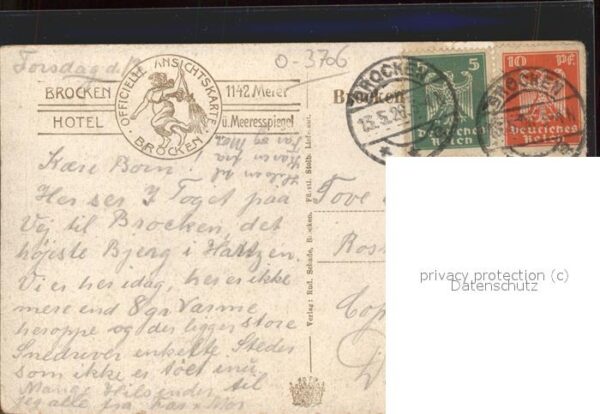 Torsdag d.
O-3706
BROCKEN
HOTEL
OFFICIELLE ANSICHTSKARTE
BROCKEN
1142 Meter
ü. Meeresspiegel
Brocken
BROCKEN
13.5.26
5
Deutsches
Reich
10 Pf.
Deutsches
Reich
BROCKEN
Hilsen til
Karen fra
Far og Mor
Kære Børn!
Her ser I Toget paa
Vej til Brocken, det
højeste Bjerg i Hartzen.
Vi er her idag, her er ikke
mere end 8 gr Varme
heroppe og der ligger store
Snedriver enkelte Steder
som ikke er tøet enu.
Mange Hilsender til
jer alle fra Far & Mor
Verlag: Rud. Schade, Brocken. Fürstl. Stolb.
Tove
privacy protection (c)
Datenschutz